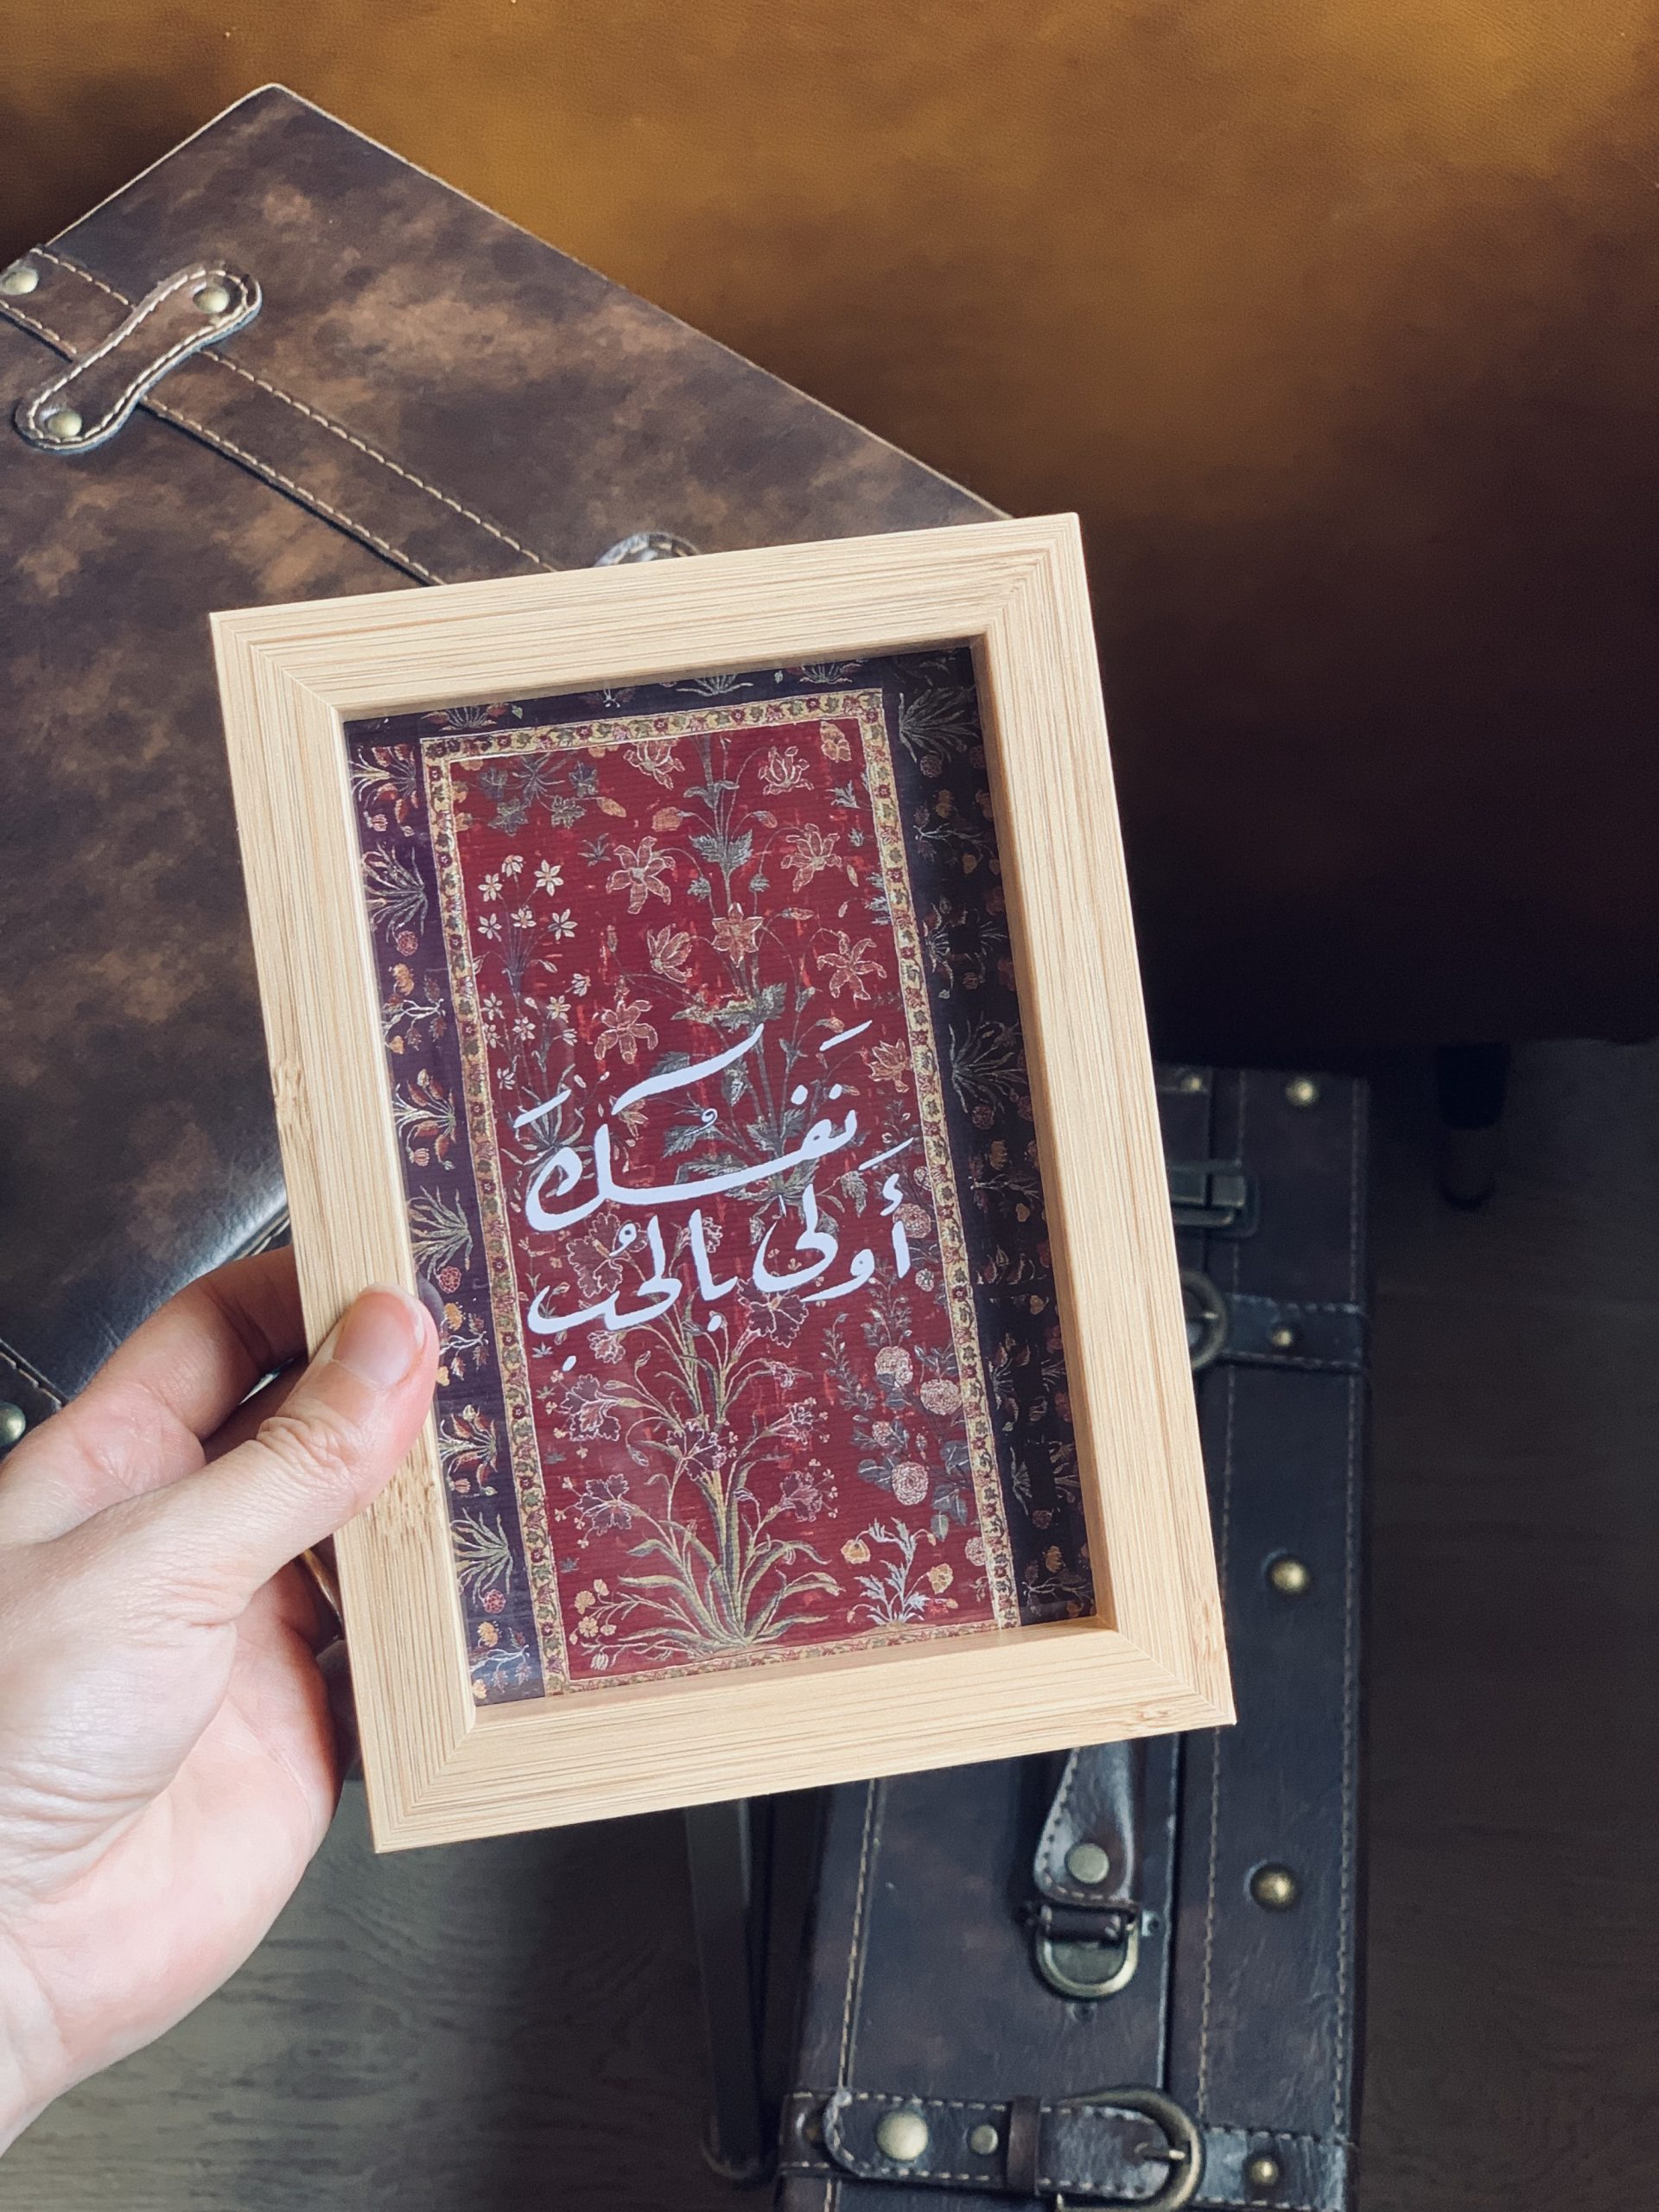 نَفْسُكَ
أَولى بالحُب